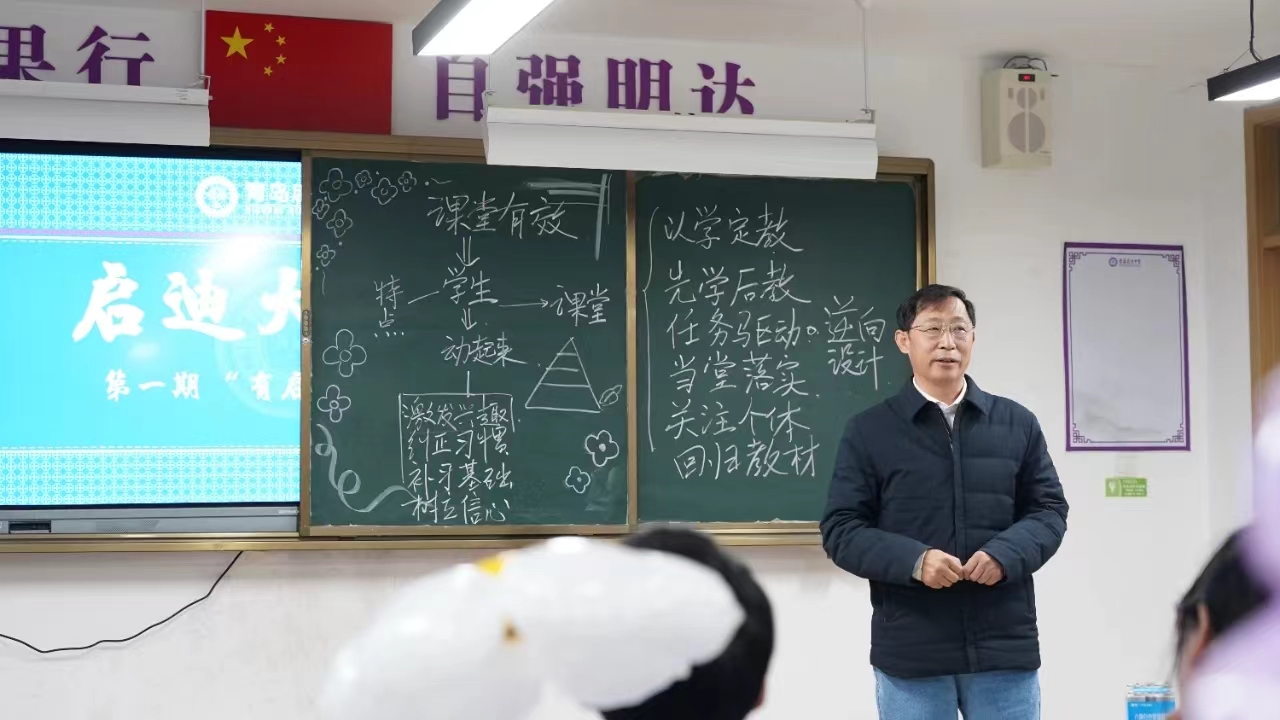 果行
自强明达
青岛
启迪大
第一期 “有启
课堂有效
特点
学生
课堂
动起来
激发兴趣
纠正习惯
补习基础
树立信心
以学定教
先学后教
任务驱动。
当堂落实
关注个体
回归教材
逆向
设计